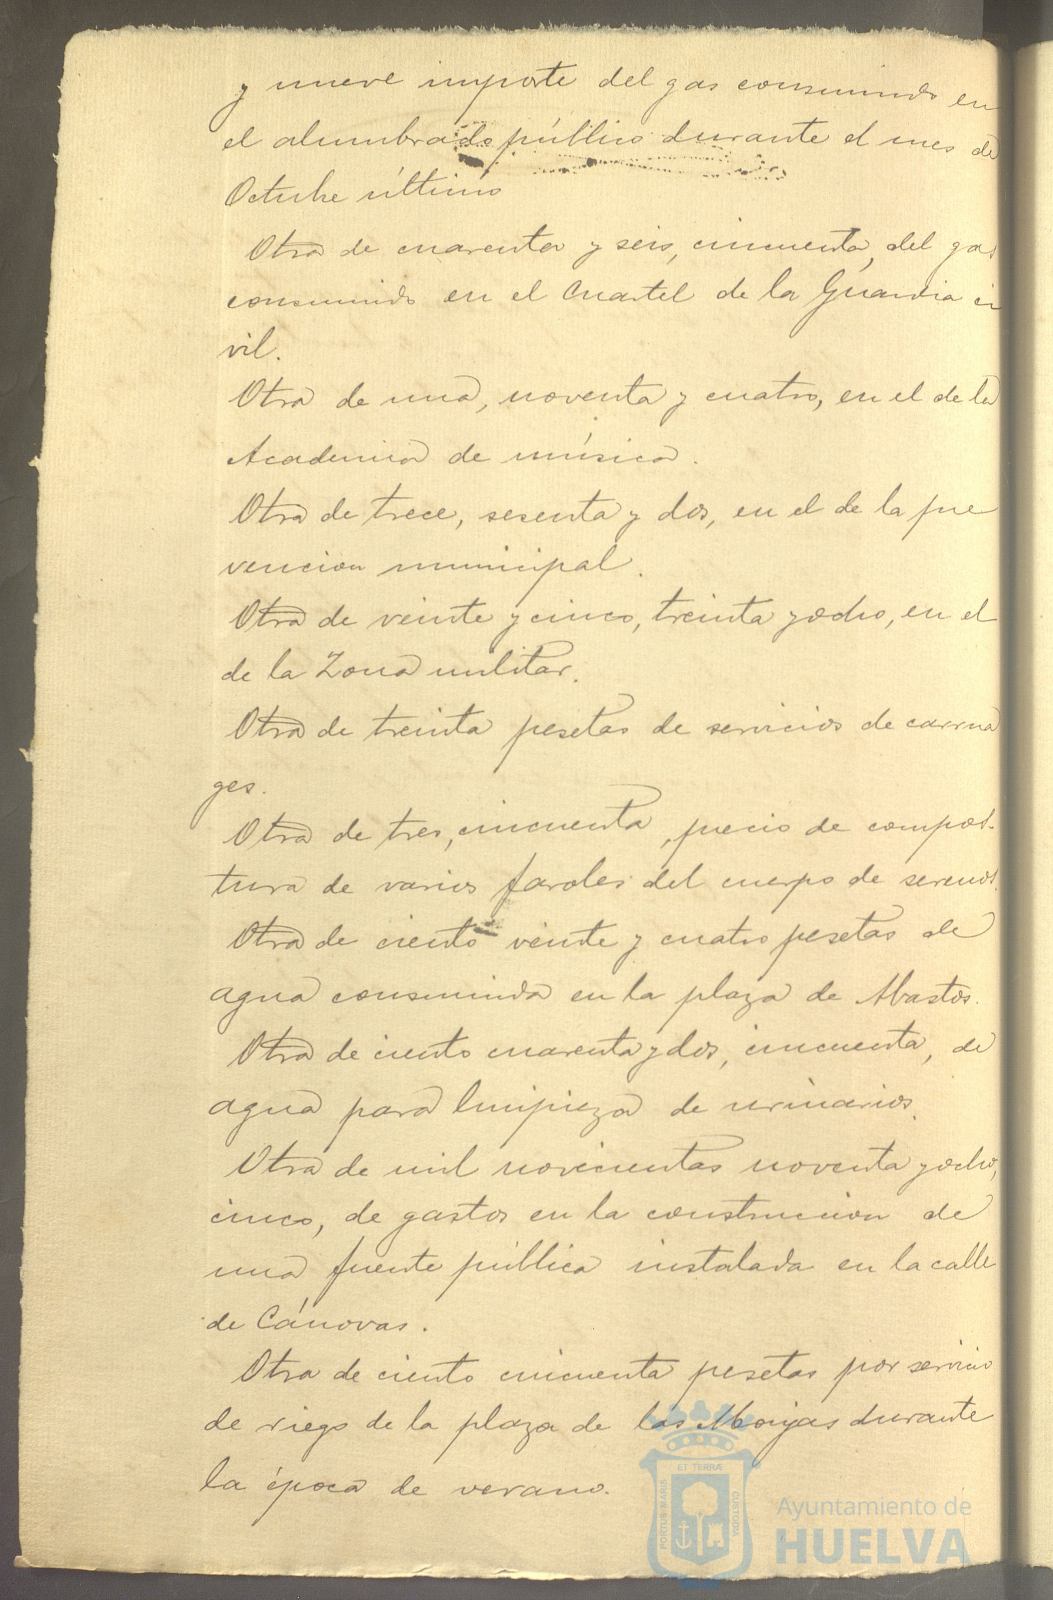 y nueve importe del gas consumido en
el alumbrado público durante el mes de
Octubre último
Otra de cuarenta y seis, cincuenta, del gas
consumido en el Cuartel de la Guardia ci
vil.
Otra de una, noventa y cuatro, en el de la
Academia de música.
Otra de trece, sesenta y dos, en el de la pre
vencion municipal.
Otra de veinte y cinco, treinta y ocho, en el
de la Zona militar.
Otra de treinta pesetas de servicios de carrua
ges.
Otra de tres, cincuenta, precio de compos-
tura de varios faroles del cuerpo de serenos.
Otra de ciento veinte y cuatro pesetas de
agua consumida en la plaza de Abastos.
Otra de ciento cuarenta y dos, cincuenta, de
agua para limpieza de urinarios.
Otra de mil novecientas noventa y ocho,
cinco, de gastos en la construccion de
una fuente pública instalada en la calle
de Cánovas.
Otra de ciento cincuenta pesetas por servicio
de riego de la plaza de las Monjas durante
la época de verano.
ET TERRÆ
PORTUS MARIS
CUSTODIA
Ayuntamiento de
HUELVA